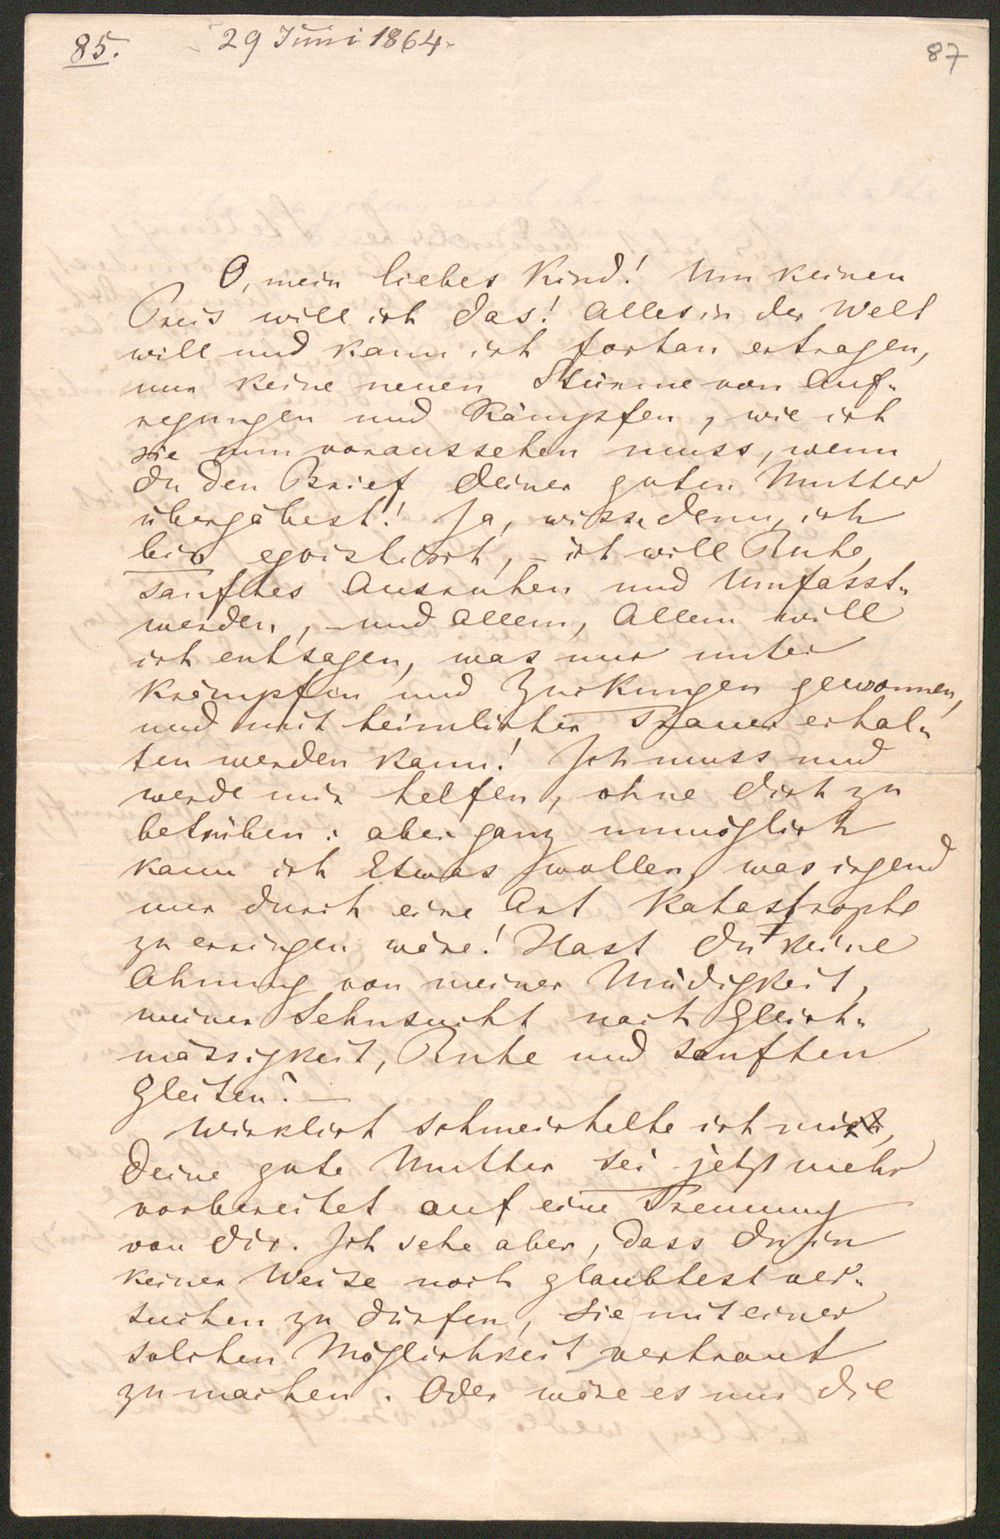 85. 29 Juni 1864. 87
O, mein liebes Kind! Um keinen
Preis will ich das! Alles in der Welt
will und kann ich fortan ertragen,
nur keine neuen Stürme von Auf-
regungen und Kämpfen, wie ich
sie nun voraussehen muss, wenn
du den Brief deiner guten Mutter
übergäbest! Ja, wisse denn, ich
bin egoistisch, – ich will Ruhe,
sanftes Ausruhen und Umfasst-
werden, – und Allem, Allem will
ich entsagen, was nur unter
Krämpfen und Zuckungen gewonnen,
und mit heimlicher Trauer erhal-
ten werden kann! Ich muss und
werde mir helfen, ohne dich zu
betrüben: aber ganz unmöglich
kann ich Etwas wollen, was irgend
nur durch eine Art Katastrophe
zu erringen wäre! Hast du keine
Ahnung von meiner Müdigkeit,
meiner Sehnsucht nach Gleich-
mässigkeit, Ruhe und sanften
Gleiten? –
Wirklich schmeichelte ich mir,
deine gute Mutter sei jetzt mehr
vorbereitet auf eine Trennung
von dir. Ich sehe aber, dass du in
keiner Weise noch glaubtest ver-
suchen zu dürfen, sie mit einer
solchen Möglichkeit vertraut
zu machen. Oder wäre es nur die